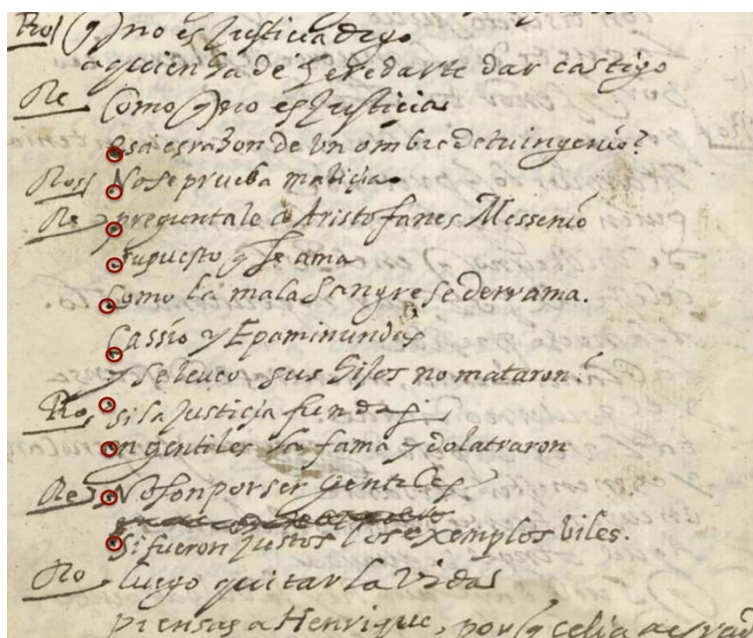 Ros/ (q) no es Justicia digo
a quien ha de heredarte dar castigo
Re Como (q) no es Justicia
esa es razon de vn ombre de tu ingenio?
Ros/ No se prueba malicia
Re preguntale a Aristofanes Messenio
supuesto q se ama
como la mala sangre se derrama.
Cassio y Epaminundas
y Seleuco sus hijos no mataron?
Ro, si la Justicia fundas
en gentiles la fama ydolatraron
Re, No son por ser gentiles
si fueron Justos los exemplos viles.
Ro luego quitar la Vida
piensas a Henrique, por q celia